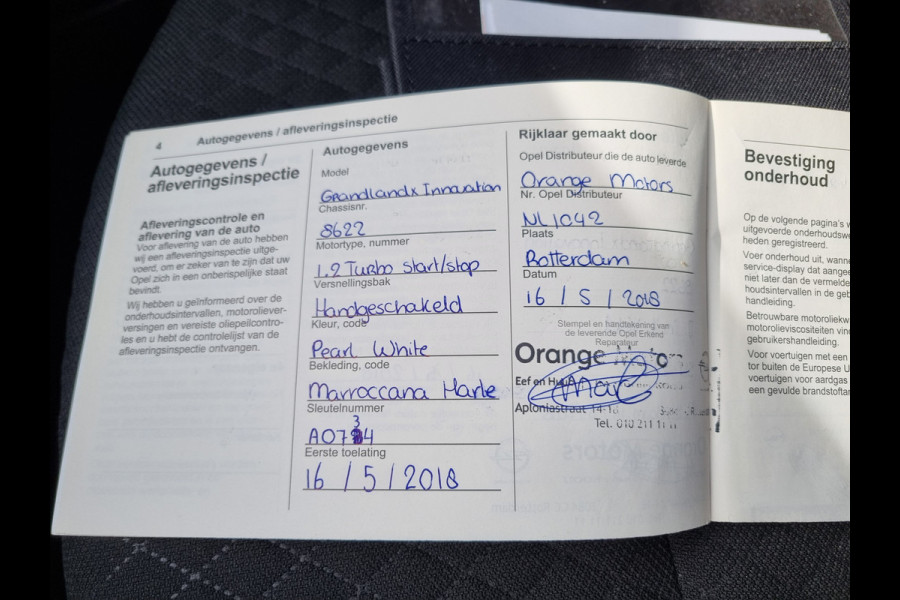 4 Autogegevens / afleveringsinspectie
Autogegevens /
afleveringsinspectie
Afleveringscontrole en
aflevering van de auto
Voor aflevering van de auto hebben
wij een afleveringsinspectie uitge-
voerd, om er zeker van te zijn dat uw
Opel zich in een onberispelijke staat
bevindt.
Wij hebben u geïnformeerd over de
onderhoudsintervallen, motoroliever-
versingen en vereiste oliepeilcontro-
les en u hebt de controlelijst van de
afleveringsinspectie ontvangen.
Autogegevens
Model
Grandlandx Innovation
Chassisnr.
8622
Motortype, nummer
1.2 Turbo start/stop
Versnellingsbak
Handgeschakeld
Kleur, code
Pearl White
Bekleding, code
Marroccana Marle
Sleutelnummer
A0734
Eerste toelating
16 / 5 / 2018
Rijklaar gemaakt door
Opel Distributeur die de auto leverde
Orange Motors
Nr. Opel Distributeur
NL1042
Plaats
Rotterdam
Datum
16 / 5 / 2018
Stempel en handtekening van
de leverende Opel Erkend
Reparateur
Orange
Eef en
14-18
Tel. 010 211
Bevestiging
onderhoud
Op de volgende pagina's
uitgevoerde
heden geregistreerd.
Voer onderhoud uit,
service-display dat
niet later dan de
houdsintervallen in de
handleiding.
Betrouwbare
motorolieviscositeiten
gebruikershandleiding.
Voor voertuigen met een
tor buiten de Europese
voertuigen voor aardgas
een gevulde